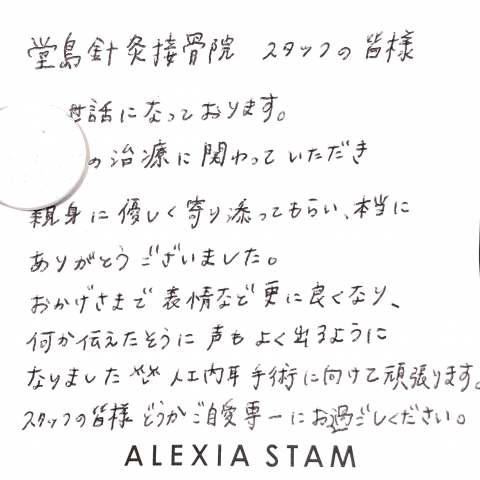 堂島針灸接骨院 スタッフの皆様
世話になっております。
の治療に関わっていただき
親身に優しく寄り添ってもらい、本当に
ありがとうございました。
おかげさまで表情など更に良くなり、
何か伝えたそうに声もよく出るように
なりました 人工内耳手術に向けて頑張ります。
スタッフの皆様どうかご自愛専一にお過ごしください。
ALEXIA STAM